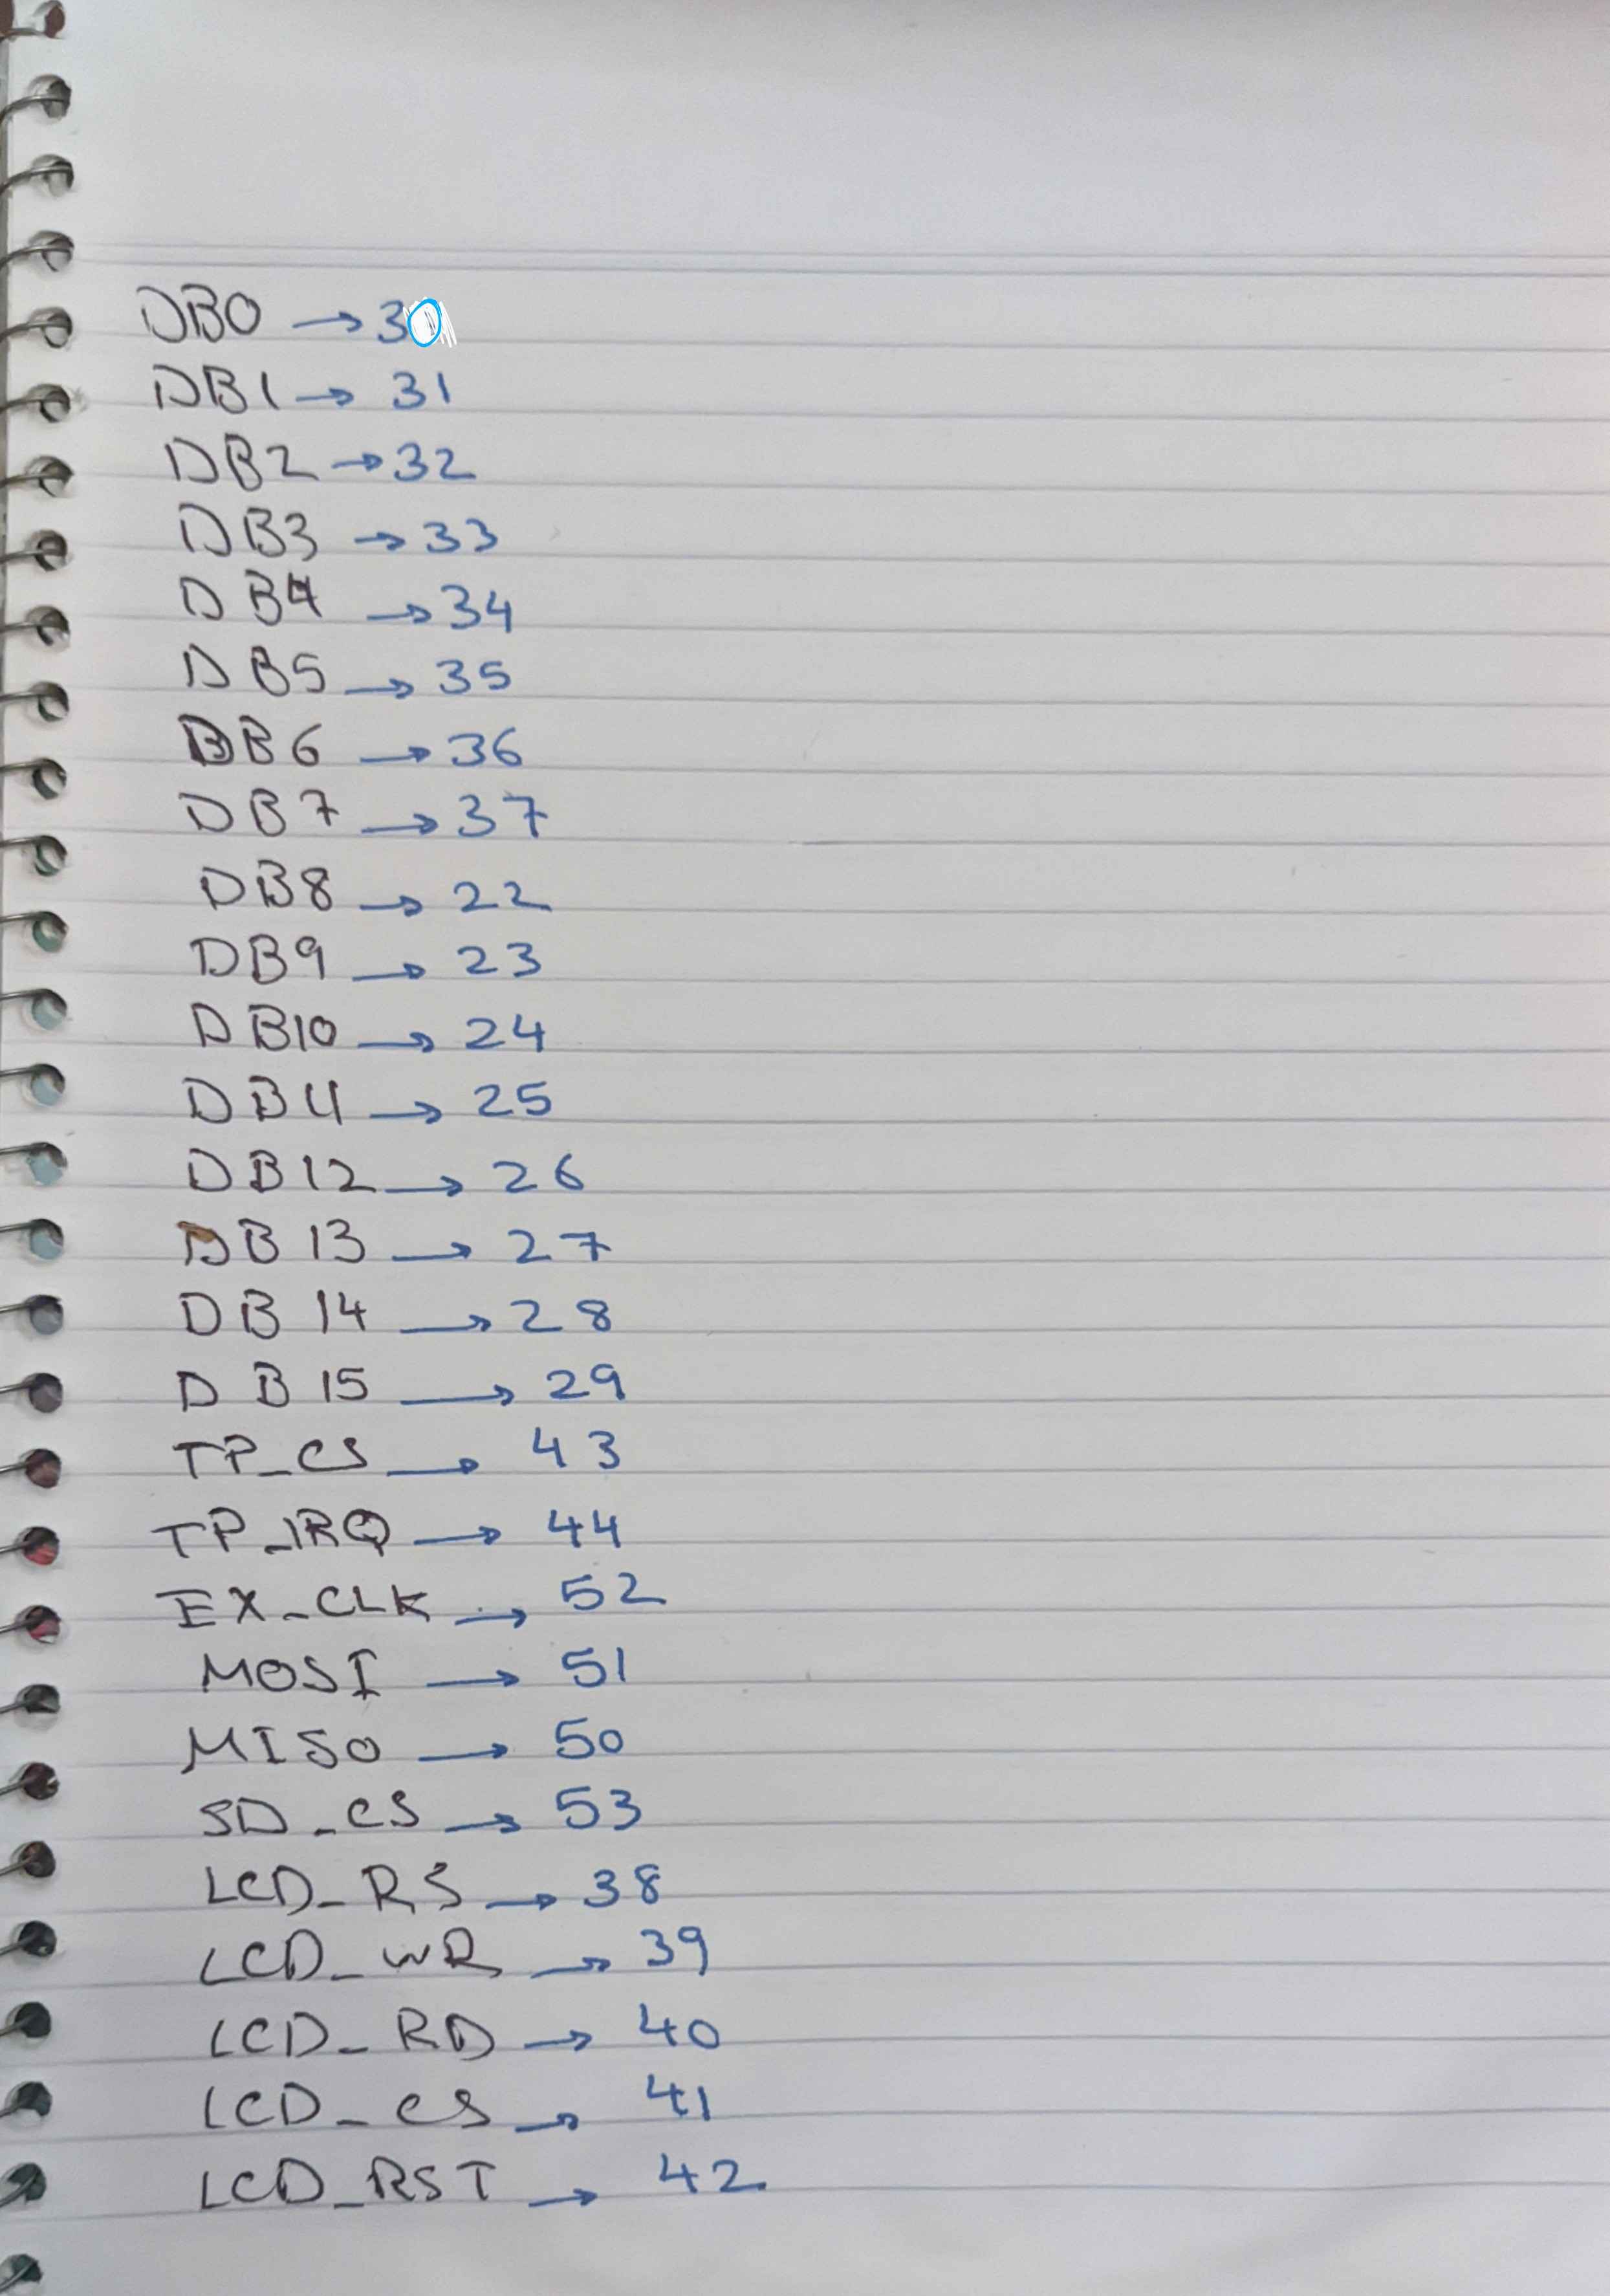 DB0 → 30
DB1 → 31
DB2 → 32
DB3 → 33
DB4 → 34
DB5 → 35
DB6 → 36
DB7 → 37
DB8 → 22
DB9 → 23
DB10 → 24
DB11 → 25
DB12 → 26
DB13 → 27
DB14 → 28
DB15 → 29
TP_CS → 43
TP_IRQ → 44
EX_CLK → 52
MOSI → 51
MISO → 50
SD_CS → 53
LCD_RS → 38
LCD_WR → 39
LCD_RD → 40
LCD_CS → 41
LCD_RST → 42